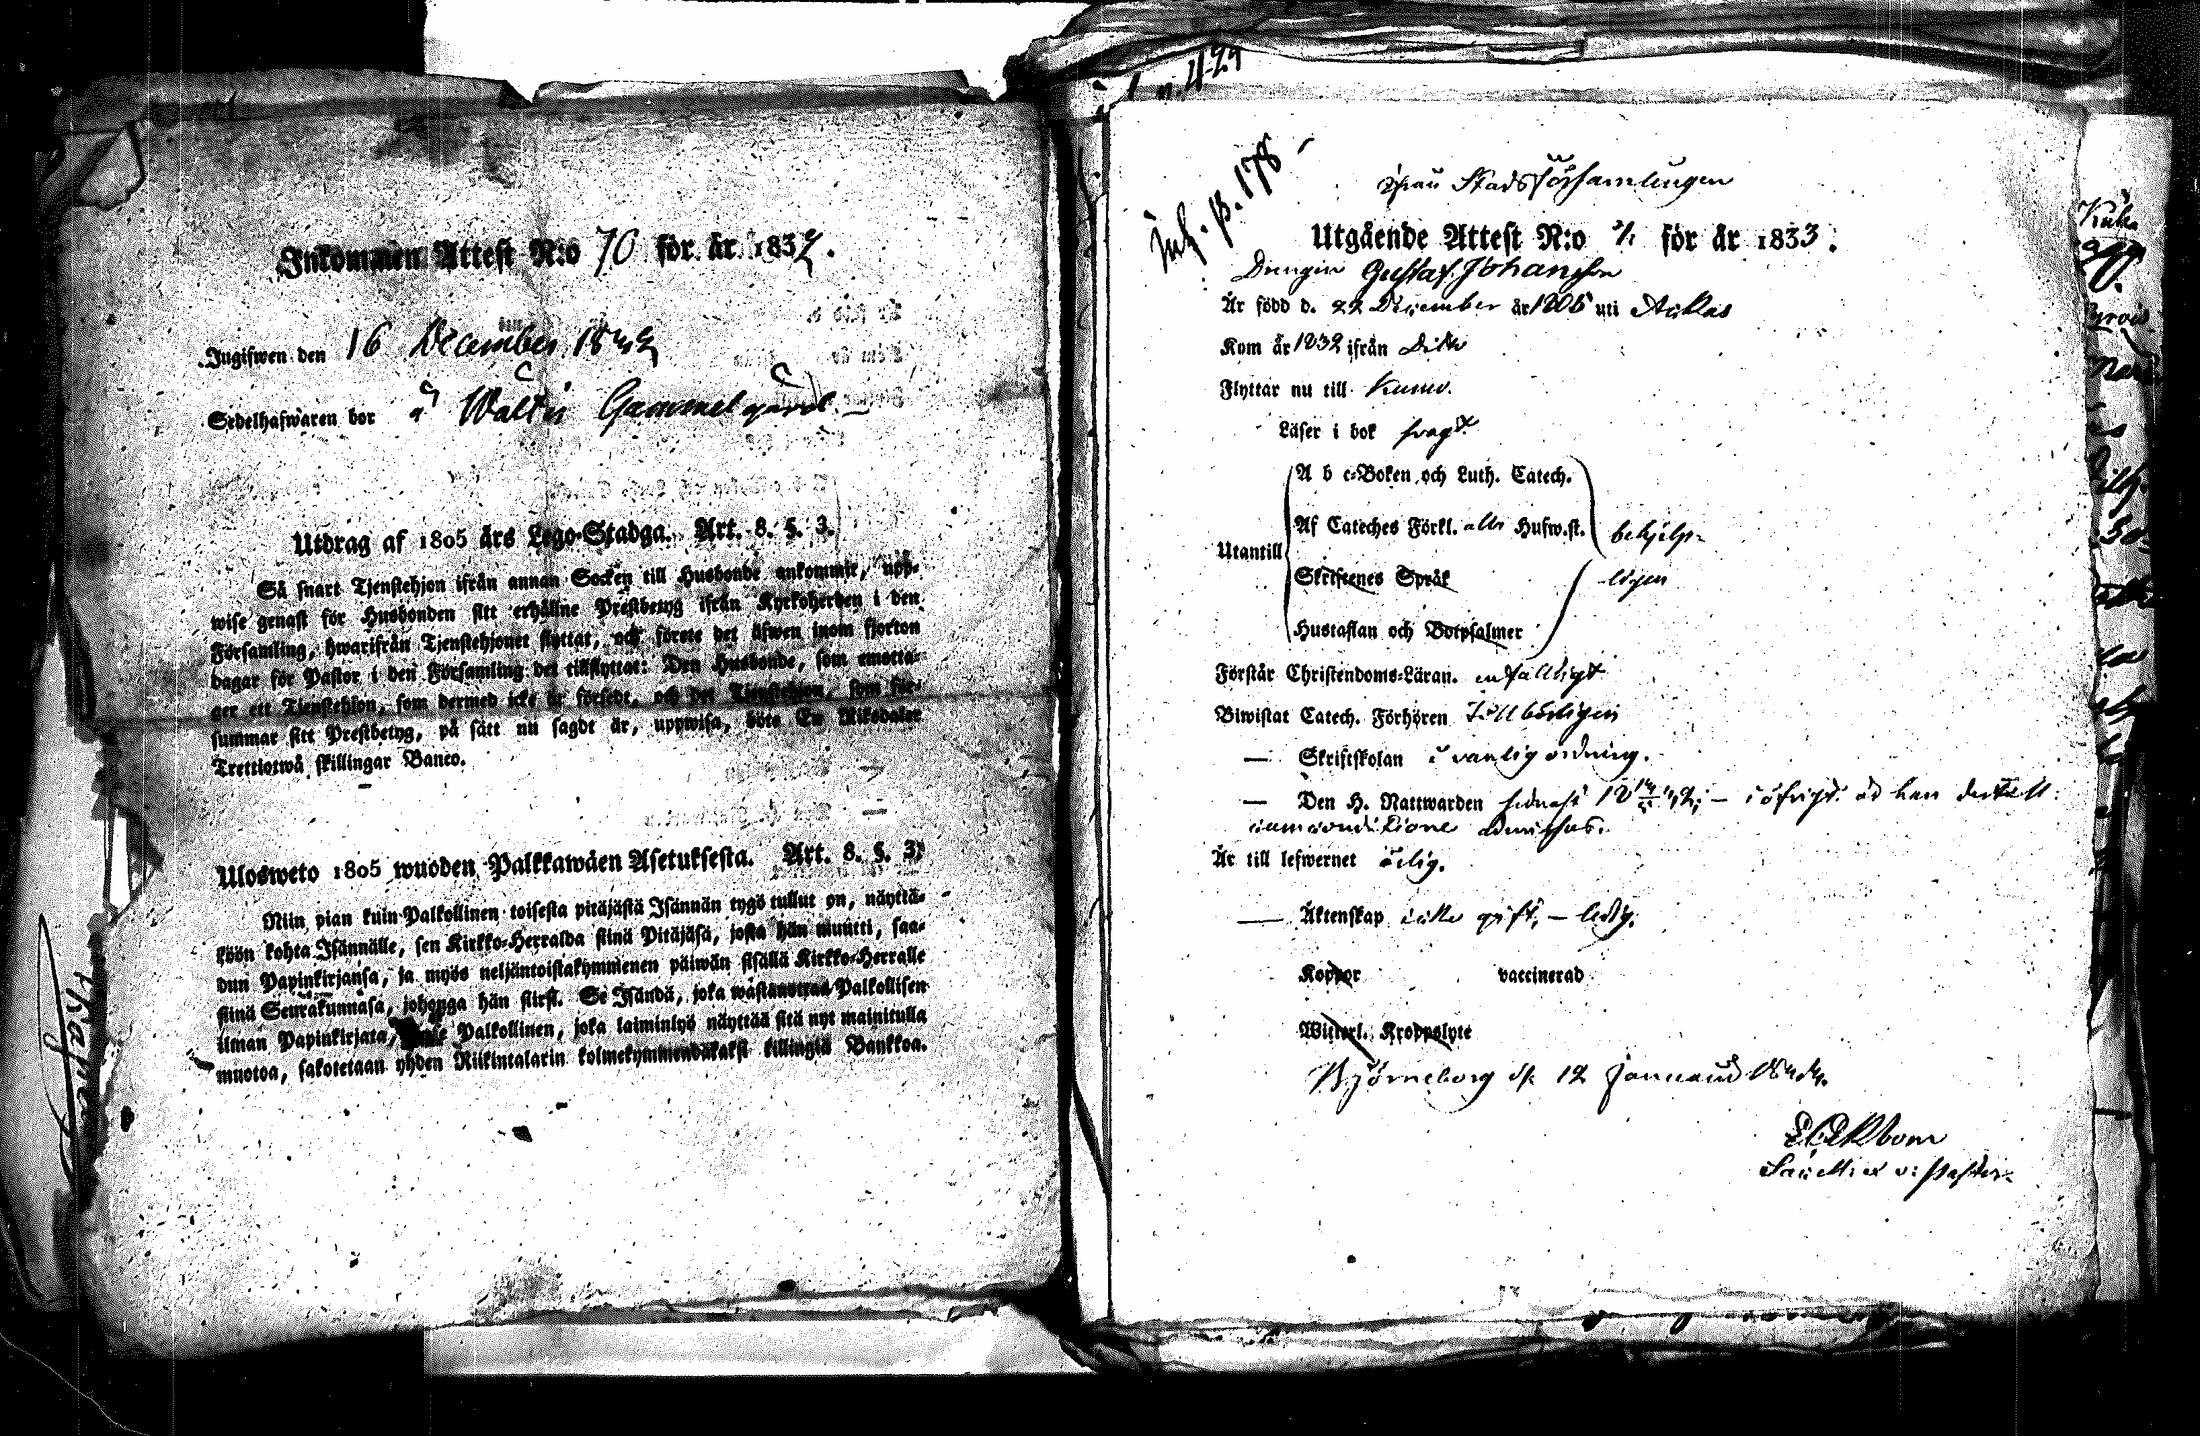 Inkommen Attest N:o 70 för år 1832.
Ingifwen den 16 December 1832
Sedelhafwaren bor å Waltis Gammelgård.
Utdrag af 1805 års Lego-Stadga. Art. 8. §. 3.
Så snart Tjenstehjon ifrån annan Socken till Husbonde ankommit, upp-
wise genast för Husbonden sitt erhållne Prestbetyg ifrån Kyrkoherden i den
Församling, hwarifrån Tjenstehjonet flyttat, och förete det äfwen inom fjorton
dagar för Pastor i den Församling det tillflyttat: Den Husbonde, som emotta-
ger ett Tjenstehjon, som dermed icke är försedt, och det Tjenstehjon, som för-
summar sitt Prestbetyg, på sätt nu sagdt är, uppwisa, böte En Riksdaler
Trettiotwå skillingar Banco.
Ulosweto 1805 wuoden Palkkawäen Asetuksesta. Art. 8. §. 3.
Niin pian kuin Palkollinen toisesta pitäjästä Isännän tygö tullut on, näyttä-
köön kohta Isännälle, sen Kirkko-Herralda siinä Pitäjäsä, josta hän muutti, saa-
dun Papinkirjansa, ja myös neljäntoistakymmenen päiwän sisällä Kirkko-Herralle
siinä Seurakunnasa, johonga hän siirsi. Se Isändä, joka wastanottaa Palkollisen
ilman Papinkirjata, Palkollinen, joka laiminlyö näyttää sitä nyt mainitulla
muotoa, sakotetaan yhden Riikintalarin kolmekymmendäkaksi killingiä Bankkoa.
Inf. p. 178
från Stadsförsamlingen
Utgående Attest N:o 2/1 för år 1833.
Drängen Gustaf Johansson
Är född d. 22 December år 1806 uti
Kom år 1832 ifrån Dito
Flyttar nu till Kumo.
Läser i bok swagt
A b c-Boken och Luth. Catech.
Af Cateches Förkl. alls Husw.st. behjelp-
Utantill
Skriftenes Språk ligen
Hustaflan och Botpsalmer
Förstår Christendoms-Läran. enfalldigt
Biwistat Catech. Förhören Tillbörligen
— Skriftskolan i vanlig ordning.
— Den H. Nattwarden sednast — i öfrigt
Är till lefwernet ärlig.
— Äktenskap icke gift, — ledig.
Koppor vaccinerad
Witterl. Kroppslyte
Björneborg d. 12 Januarii 1833.